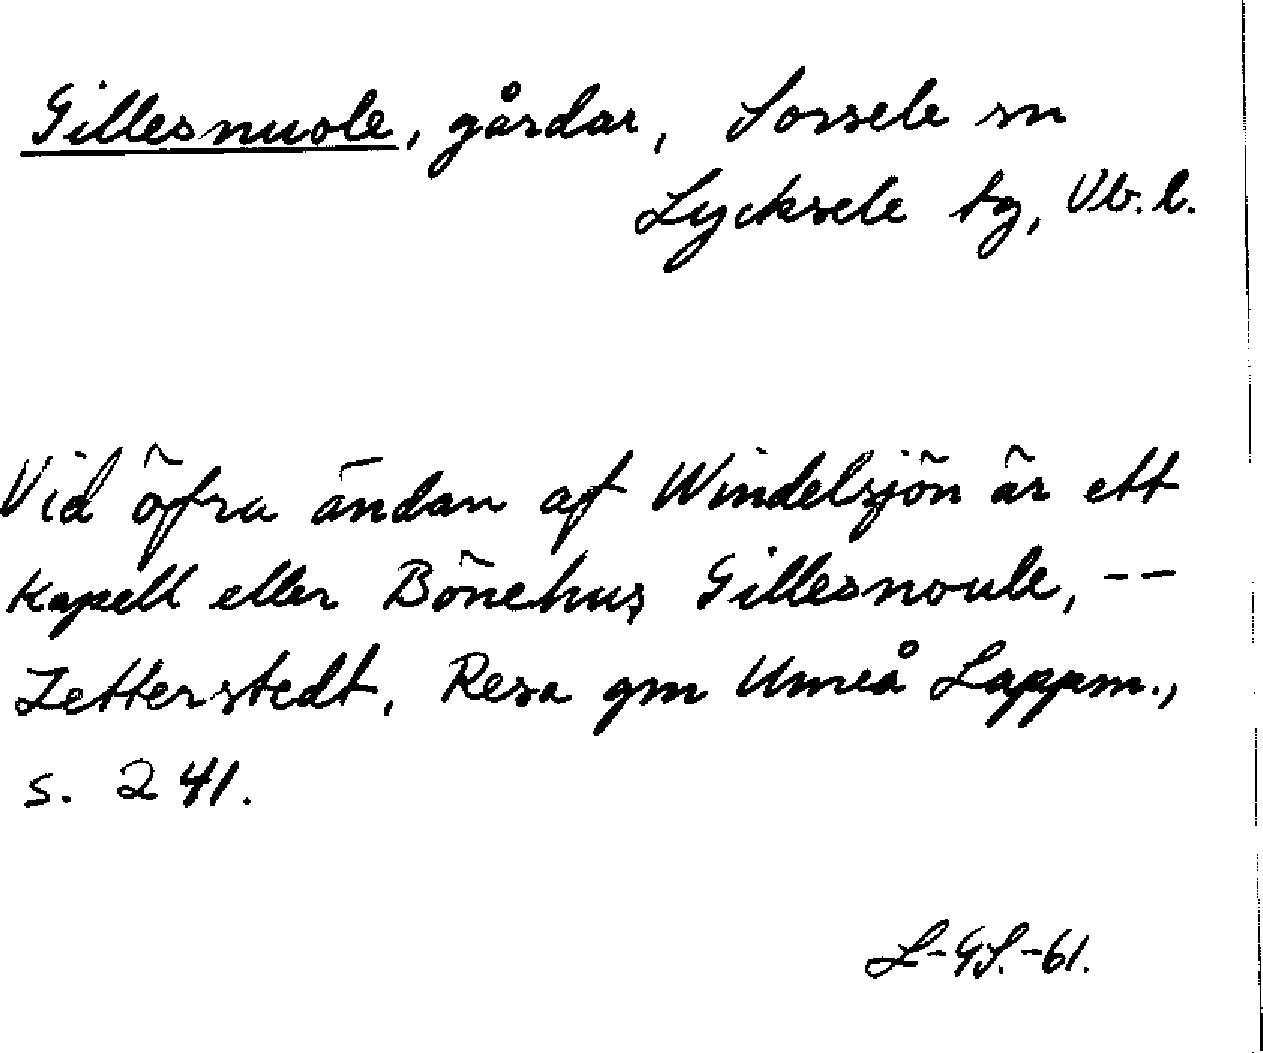 Gillesnuole, gårdar, Sorsele sn
Lycksele tg, Vb. l.
Vid öfra ändan af Windelsjön är ett
kapell eller Bönehus, Gillesnoule, --
Zetterstedt, Resa gm Umeå Lappm.,
s. 241.
L-GS.-61.